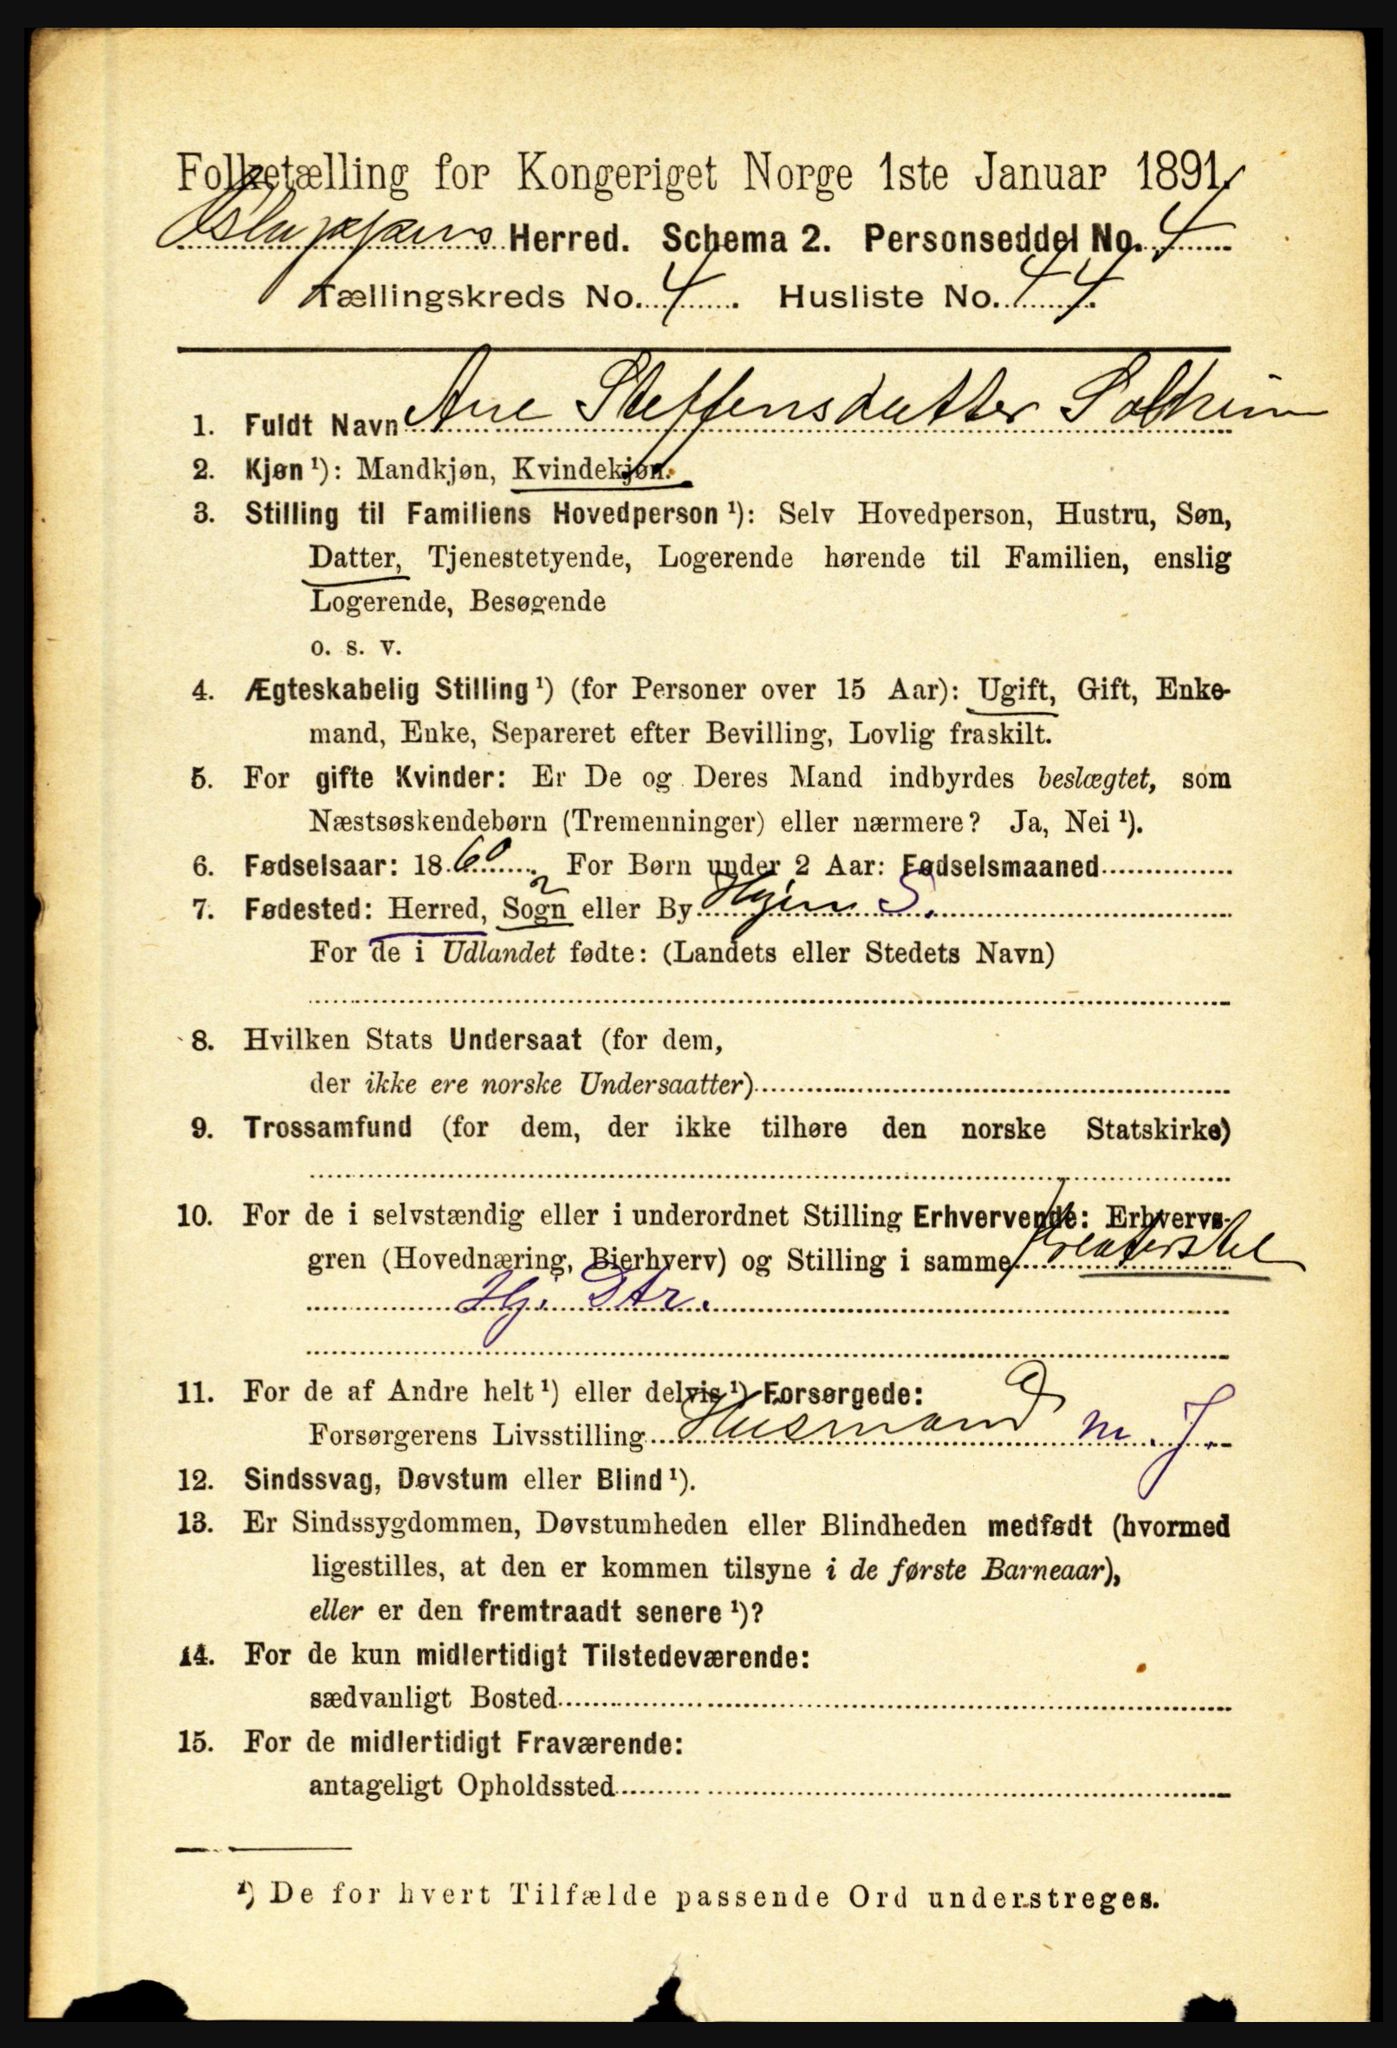 Folketælling for Kongeriget Norge 1ste Januar 1891.
Herred. Schema 2. Personseddel No. 4
Tællingskreds No. 4. Husliste No. 44.
1. Fuldt Navn Ane Steffensdatter Solheim
2. Kjøn ¹): Mandkjøn, Kvindekjøn.
3. Stilling til Familiens Hovedperson ¹): Selv Hovedperson, Hustru, Søn,
Datter, Tjenestetyende, Logerende hørende til Familien, enslig
Logerende, Besøgende
o. s. v.
4. Ægteskabelig Stilling ¹) (for Personer over 15 Aar): Ugift, Gift, Enke-
mand, Enke, Separeret efter Bevilling, Lovlig fraskilt.
5. For gifte Kvinder: Er De og Deres Mand indbyrdes beslægtet, som
Næstsøskendebørn (Tremenninger) eller nærmere? Ja, Nei ¹).
6. Fødselsaar: 1860. For Børn under 2 Aar: Fødselsmaaned
7. Fødested: Herred, Sogn eller By Hyen S.
For de i Udlandet fødte: (Landets eller Stedets Navn)
8. Hvilken Stats Undersaat (for dem,
der ikke ere norske Undersaatter)
9. Trossamfund (for dem, der ikke tilhøre den norske Statskirke)
10. For de i selvstændig eller i underordnet Stilling Erhvervende: Erhvervs-
gren (Hovednæring, Bierhverv) og Stilling i samme Kreaturstel
Hj. Dtr.
11. For de af Andre helt ¹) eller delvis ¹) Forsørgede:
Forsørgerens Livsstilling Husmand m. J.
12. Sindssvag, Døvstum eller Blind ¹).
13. Er Sindssygdommen, Døvstumheden eller Blindheden medfødt (hvormed
ligestilles, at den er kommen tilsyne i de første Barneaar),
eller er den fremtraadt senere ¹)?
14. For de kun midlertidigt Tilstedeværende:
sædvanligt Bosted
15. For de midlertidigt Fraværende:
antageligt Opholdssted
¹) De for hvert Tilfælde passende Ord understreges.